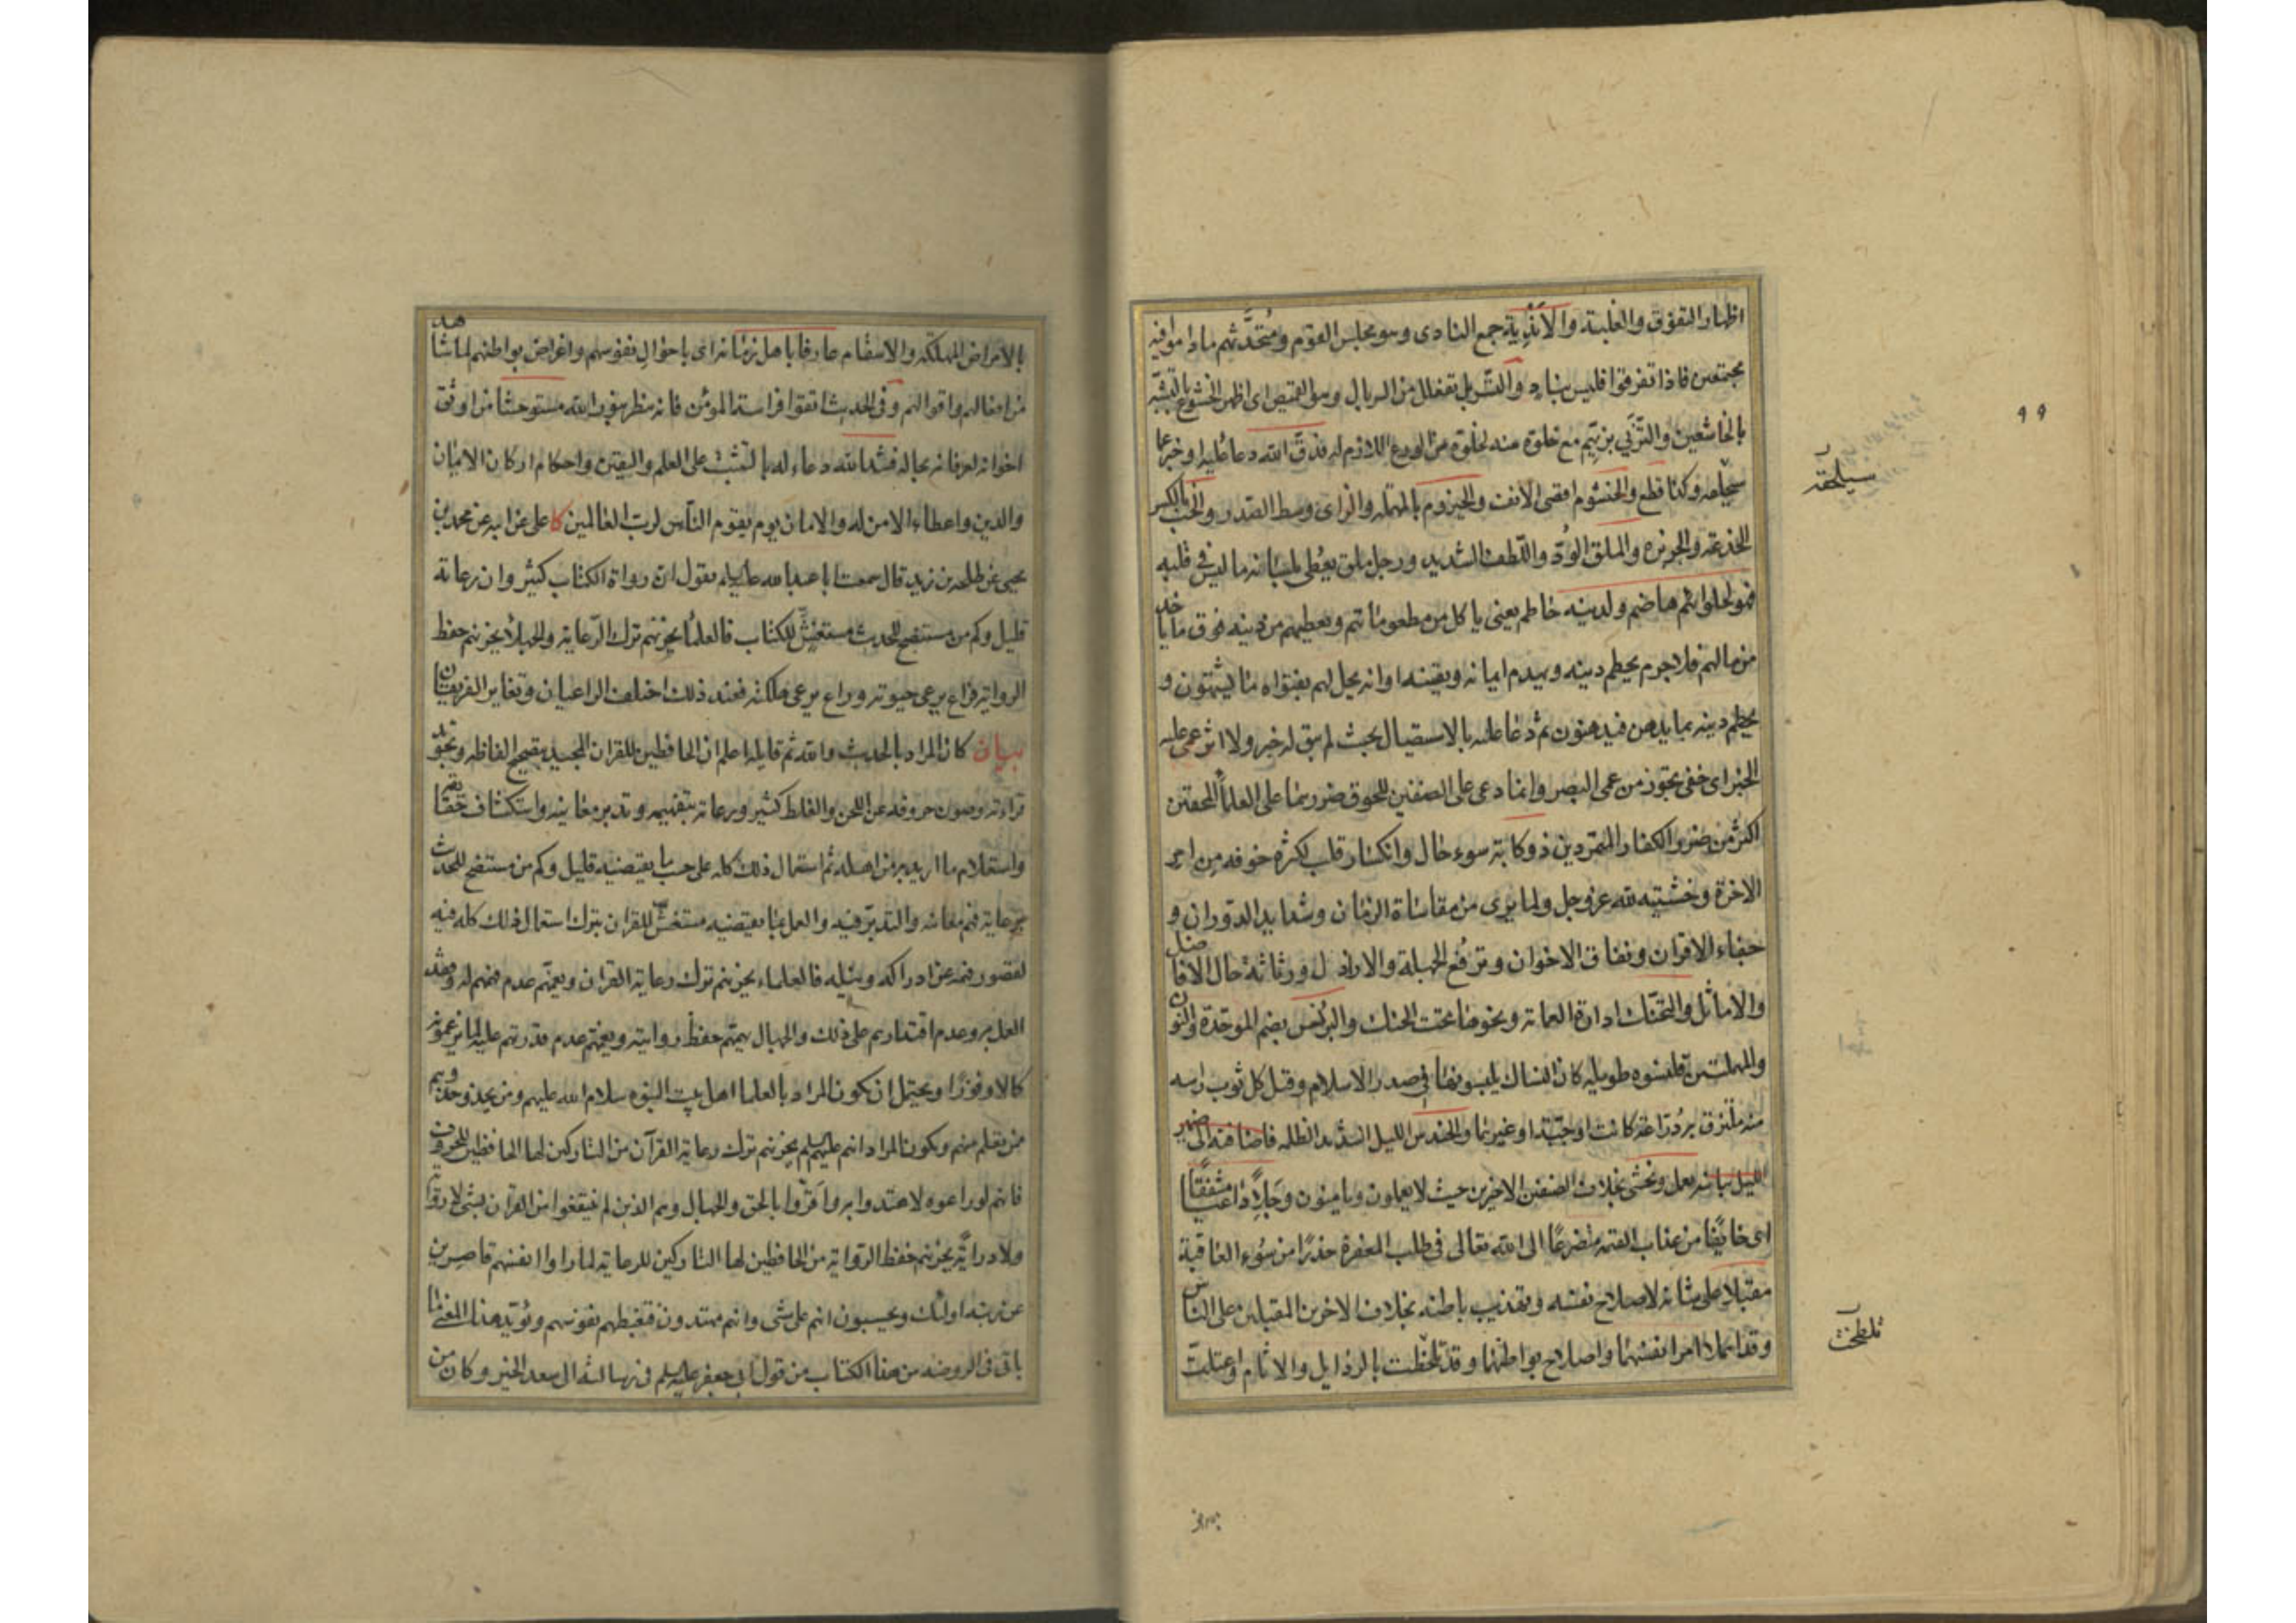 اظهار التفوق والغلبة والاندية جمع النادى وهو مجلس القوم ومتحدثهم ماداموا فيه
مجتمعين فاذا تفرقوا فليس بناد والتسربل تفعلل من السربال وهو القميص اى اظهر الخشوع بالتشبه
بالخاشعين والتزيى بزيهم مع خلوه منه لخلوه من الورع اللازم له فدق الله دعا عليه او خبر عما
سيلحقه وكذا قطع والخيشوم اقصى الانف والحيزوم بالمهملة والزاى وسط الصدر والخب بالكسر
الخدعة والجربزه والملق الود واللطف الشديد ورجل ملق يعطى بلسانه ما ليس فى قلبه
فهو لحلوائهم هاضم ولدينه حاطم يعنى ياكل من مطعوماتهم ويعطيهم من دينه فوق ما ياخذ
من مالهم فلاجرم يحطم دينه ويهدم ايمانه ويقينه او انه يحل لهم بفتواه ما يشتهون و
يحطم دينه بما يدهن فيدهنون ثم دعا عليه بالاستيصال بحيث لم يبق له خبر ولا اثر عمى عليه
الخبر اى خفى تجوز من عمى البصر وانما دعى على الصنفين للحوق ضررهما على العلماء المحقين
اكثر من ضرر الكفار المتمردين ذو كابة سوء حال وانكسار قلب لكثرة خوفه من امر
الاخرة وخشيته لله عز وجل ولما يرى من مقاساة الزمان وشدايد الدوران و
جفاء الاقران ونفاق الاخوان وترفع الجهلة والاراذل ورثاثة حال الافاضل
والاماثل والتحنك ادارة العمامة ونحوها تحت الحنك والبرنس بضم الموحدة والنون
والمهملتين قلنسوه طويله كان النساك يلبسونها فى صدر الاسلام وقيل كل ثوب راسه
منه ملتزق به دراعة كانت او جبة او غيرهما والحندس الليل الشديد الظلمه فاضافته الى ضمير
الليل بيانيه يعمل ويخشى بخلاف الصنفين الاخيرين حيث لا يعملون ويامنون وجلا داعيا مشفقا
اى خايفا من عذاب الله متضرعا الى الله تعالى فى طلب المغفرة حذرا من سوء العاقبة
مقبلا على شانه لاصلاح نفسه وتهذيب باطنه بخلاف الاخرين المقبلين على الناس
وقد اهملا امر انفسهما واصلاح بواطنهما وقد تلطخت بالرذايل والاثام واعتلت
سيلحقه
تلطخت
٩٩
بالامراض المهلكة والاسقام عارفا باهل زمانه اى باحوال نفوسهم واغراض بواطنهم لما شاهد
من افعالهم واقوالهم وفى الحديث اتقوا فراسة المؤمن فانه ينظر بنور الله مستوحشا من اوثق
اخوانه لعرفانه بحاله فشد الله دعاء له بالتثبت على العلم واليقين واحكام اركان الايمان
والدين واعطاء الامن له والامان يوم يقوم الناس لرب العالمين كا على عن ابيه عن محمد بن
يحيى عن طلحه بن زيد قال سمعت ابا عبد الله عليه السلام يقول ان رواة الكتاب كثير وان رعاته
قليل وكم من مستنصح للحديث مستغش للكتاب فالعلماء يحزنهم ترك الرعاية والجهلاء يحزنهم حفظ
الرواية فراع يرعى حيوته وراع يرعى هلكته فعند ذلك اختلف الراعيان وتغاير الفريقان
بيان كان المراد بالحديث والله ثم قايله اعلم ان الحافظين للقران المجيد بتصحيح الفاظه وتجويد
قراءته وصون حروفه عن اللحن والغلط كثير ورعاته بتفهيمه وتدبر معانيه واستكشاف حقايقه
واستعلام ما اريد به من اهله ثم استعمال ذلك كله على حسب ما يقتضيه قليل وكم من مستنصح للحديث
برعاية فهم معانيه والتدبر فيه والعمل بما يقتضيه مستغش للقران بترك استعمال ذلك كله فيه
لقصور فهمه عن ادراكه ونيله فالعلماء يحزنهم ترك رعاية القران ويهمهم عدم فهمهم له وفقد
العمل به وعدم اقتدارهم على ذلك والجهال يهمهم حفظ روايته ويغمهم عدم قدرتهم عليه لما يزعمونه
كمالا وفوزا ويحتمل ان يكون المراد بالعلما اهل بيت النبوه سلام الله عليهم ومن يحذو حذوهم
ممن تعلم منهم ويكون المراد انهم عليهم السلم يحزنهم ترك رعاية القرآن من التاركين لها الحافظين للحروف
فانهم لو راعوه لاهتدوا به واقروا بالحق والجهال وهم الذين لم ينتفعوا من القرآن بشئ لا رواية
ولا دراية يحزنهم حفظ الرواية من الحافظين لها التاركين للرعاية لما راوا انفسهم قاصرين
عن رتبة اولئك ويحسبون انهم على شى وانهم مهتدون فتغبطهم نفوسهم ويؤيد هذا المعنى ما
ياتى فى الروضه من هذا الكتاب من قول ابى جعفر عليه السلم فى رسالته الى سعد الخير وكان من